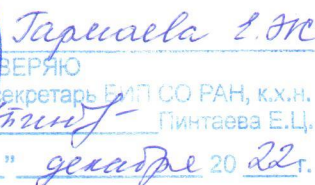 Гармаева Е.Ж
ВЕРЯЮ
секретарь БИП СО РАН, к.х.н.
Пинтаева Е.Ц.
" декабря 20 22 г.